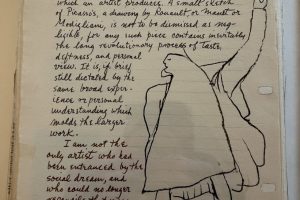 which an artist produces. A small sketch
of Picasso's, a drawing by Rouault, or Manet or
Modigliani, is not to be dismissed as neg-
ligible, for any such piece contains inevitably
the long revolutionary process of taste,
deftness, and personal
view. It is, if brief
still dictated by the
same broad exper-
ience or personal
understanding which
molds the larger
work.
I am not the
only artist who had
been entranced by the
social dream, and
who could no longer